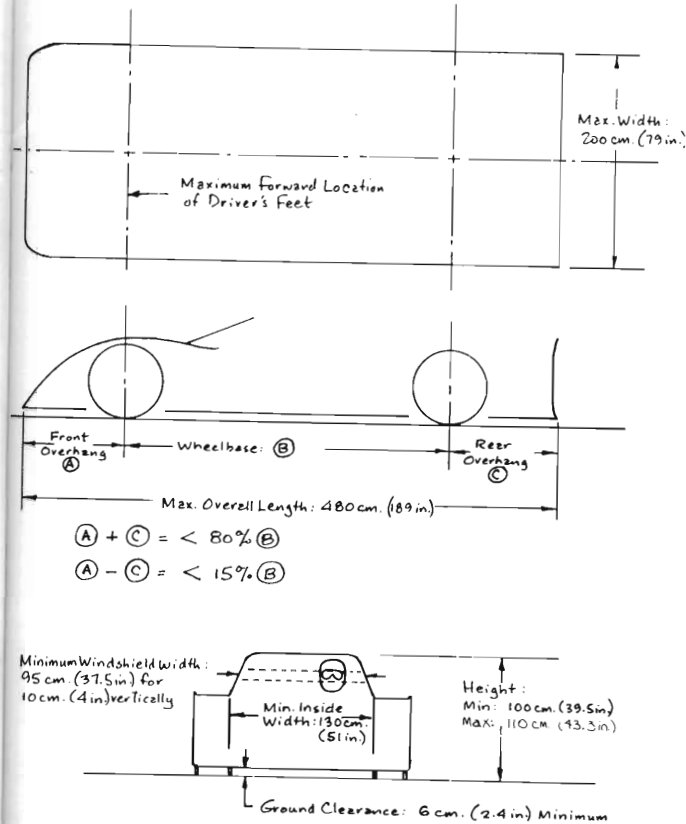 Max. Width:
200 cm. (79 in.)
Maximum Forward Location
of Driver's Feet
Front
Overhang
A
Wheelbase: B
Rear
Overhang
C
Max. Overall Length: 480 cm. (189 in.)
A + C = < 80% B
A - C = < 15% B
Minimum Windshield Width:
95 cm. (37.5 in) for
10 cm. (4 in) vertically
Min. Inside
Width: 130 cm.
(51 in.)
Height:
Min: 100 cm. (39.5 in)
Max: 110 cm. (43.3 in)
Ground Clearance: 6 cm. (2.4 in.) Minimum